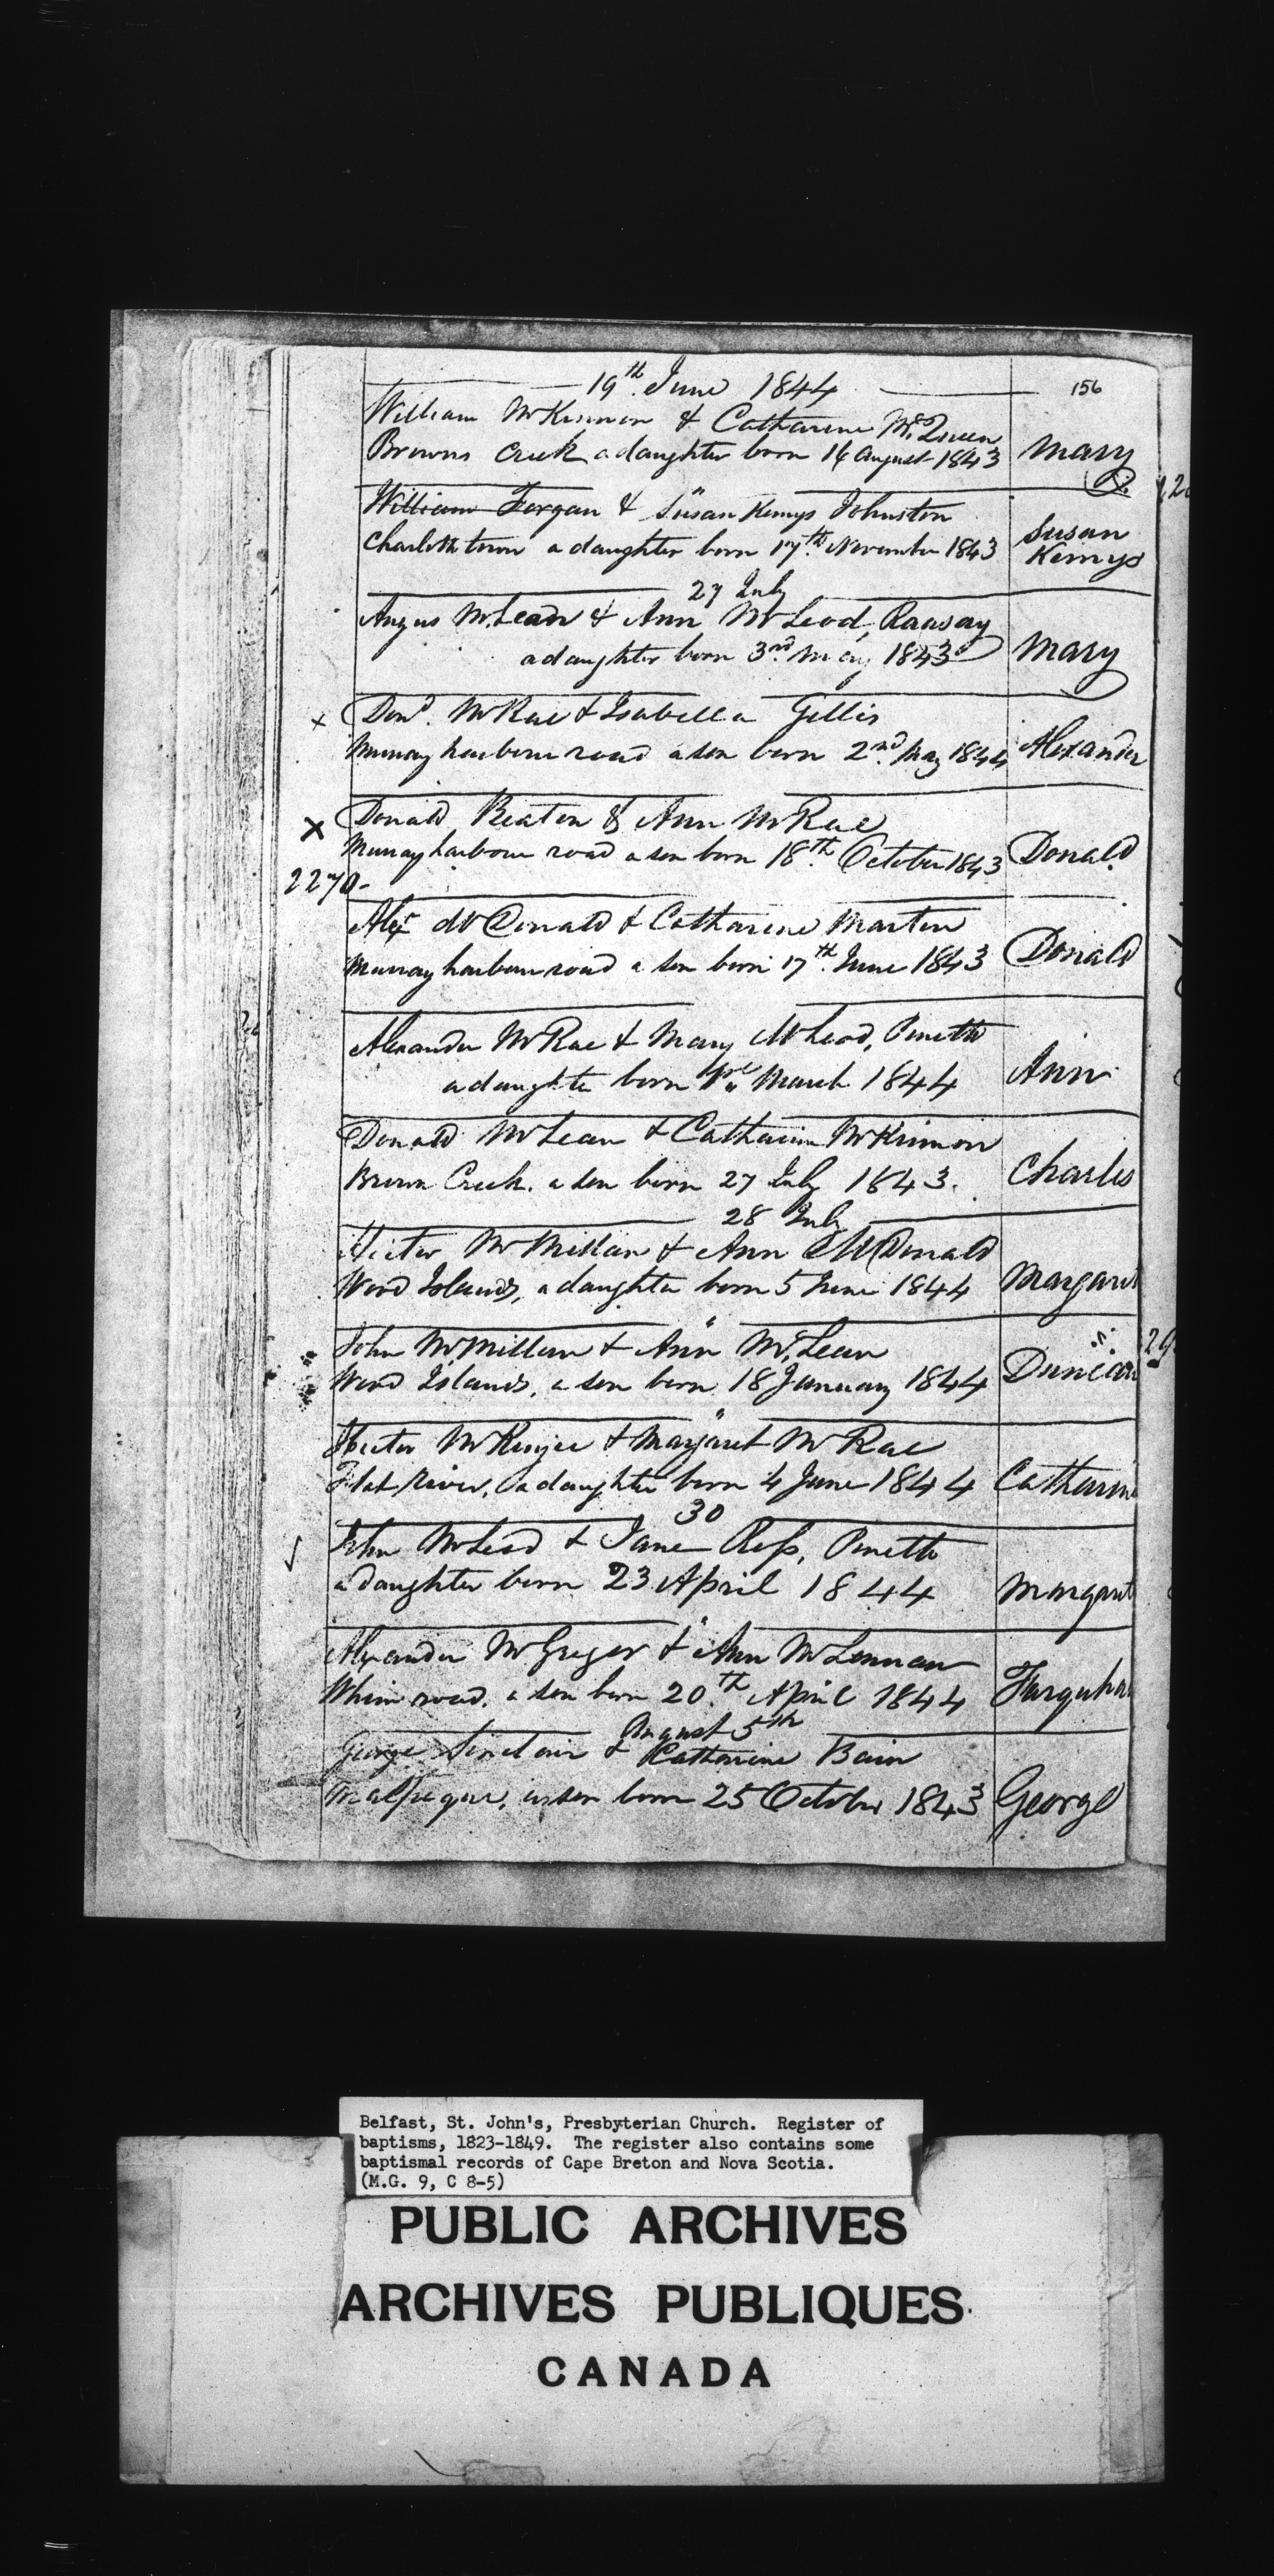 19th June 1844
156
William McKinnon & Catharine McQueen
Browns Creek a daughter born 14 August 1843 Mary
William Forgan & Susan Kemys Johnston
Charlotte town a daughter born 17th November 1843 Susan Kemys
27 July
Angus McLean & Ann McLeod, Raasay
a daughter born 3rd May 1843 Mary
x Dond. McRae & Isabella Gillis
Murray harbour road a son born 2nd May 1844 Alexander
x Donald Beaton & Ann McRae
Murray harbour road a son born 18th October 1843 Donald
2270-
Alexr McDonald & Catharine Martin
Murray harbour road a son born 17th June 1843 Donald
Alexander McRae & Mary McLeod, Pinette
a daughter born March 1844 Ann
Donald McLean & Catharine McKinnon
Brown Creek. a son born 27 July 1843. Charles
28 July
Hector McMillan & Ann McDonald
Wood Islands, a daughter born 5 June 1844 Margaret
John McMillan & Ann McLean
Wood Islands, a son born 18 January 1844 Duncan
Hector McKenzie & Margaret McRae
Flat River, a daughter born 4 June 1844 Catharine
30
John McLeod & Jane Ross, Pinette
a daughter born 23 April 1844 Margaret
Alexander McGregor & Ann McLennan
Whim road. a son born 20th April 1844 Farquhar
August 5th
George Sinclair & Catharine Bain
Malpeque, a son born 25 October 1843 George
Belfast, St. John's, Presbyterian Church. Register of
baptisms, 1823-1849. The register also contains some
baptismal records of Cape Breton and Nova Scotia.
(M.G. 9, C 8-5)
PUBLIC ARCHIVES
ARCHIVES PUBLIQUES
CANADA